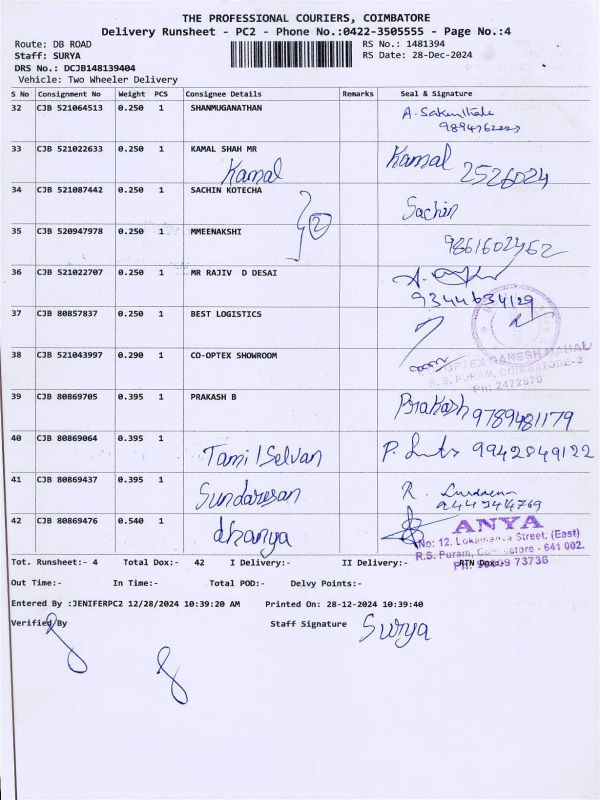 THE PROFESSIONAL COURIERS, COIMBATORE
Delivery Runsheet - PC2 - Phone No.:0422-3505555 - Page No.:4
Route: DB ROAD RS No.: 1481394
Staff: SURYA RS Date: 28-Dec-2024
DRS No.: DCJB148139404
Vehicle: Two Wheeler Delivery
S No Consignment No Weight PCS Consignee Details Remarks Seal & Signature
32 CJB 521064513 0.250 1 SHANMUGANATHAN A.
33 CJB 521022633 0.250 1 KAMAL SHAH MR Kamal
Kamal 2526024
34 CJB 521087442 0.250 1 SACHIN KOTECHA Sachin
2
35 CJB 520947978 0.250 1 MMEENAKSHI
36 CJB 521022707 0.250 1 MR RAJIV D DESAI
9344634129
37 CJB 80857837 0.250 1 BEST LOGISTICS
38 CJB 521043997 0.290 1 CO-OPTEX SHOWROOM OPTEX GANESH MAHAL
R. S. PURAM, COIMBATORE-2
Ph: 2472670
39 CJB 80869705 0.395 1 PRAKASH B Prakash 9789481179
40 CJB 80869064 0.395 1 Tamil Selvan P. 9942849122
41 CJB 80869437 0.395 1 Sundaresan R.
42 CJB 80869476 0.540 1 dhanya ANYA
No: 12, Lokamanya Street, (East)
R.S. Puram, Coimbatore - 641 002.
Tot. Runsheet:- 4 Total Dox:- 42 I Delivery:- II Delivery:- RTN Dox:-
Ph: 73736
Out Time:- In Time:- Total POD:- Delvy Points:-
Entered By :JENIFERPC2 12/28/2024 10:39:20 AM Printed On: 28-12-2024 10:39:40
Verified By Staff Signature Surya